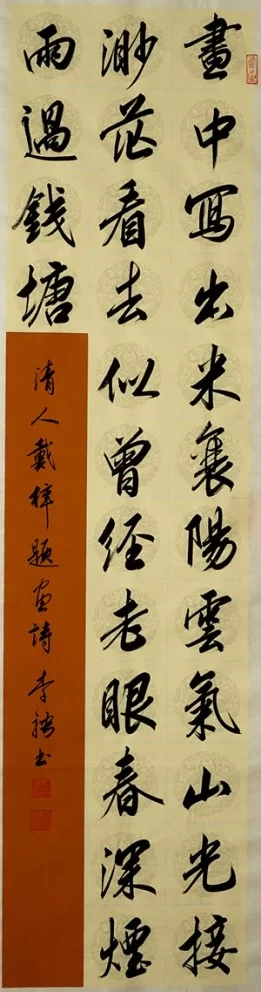 畫中寫出米襄陽雲氣山光接
渺茫看去似曾經老眼春深煙
雨過錢塘
清人戴梓題画詩 李书